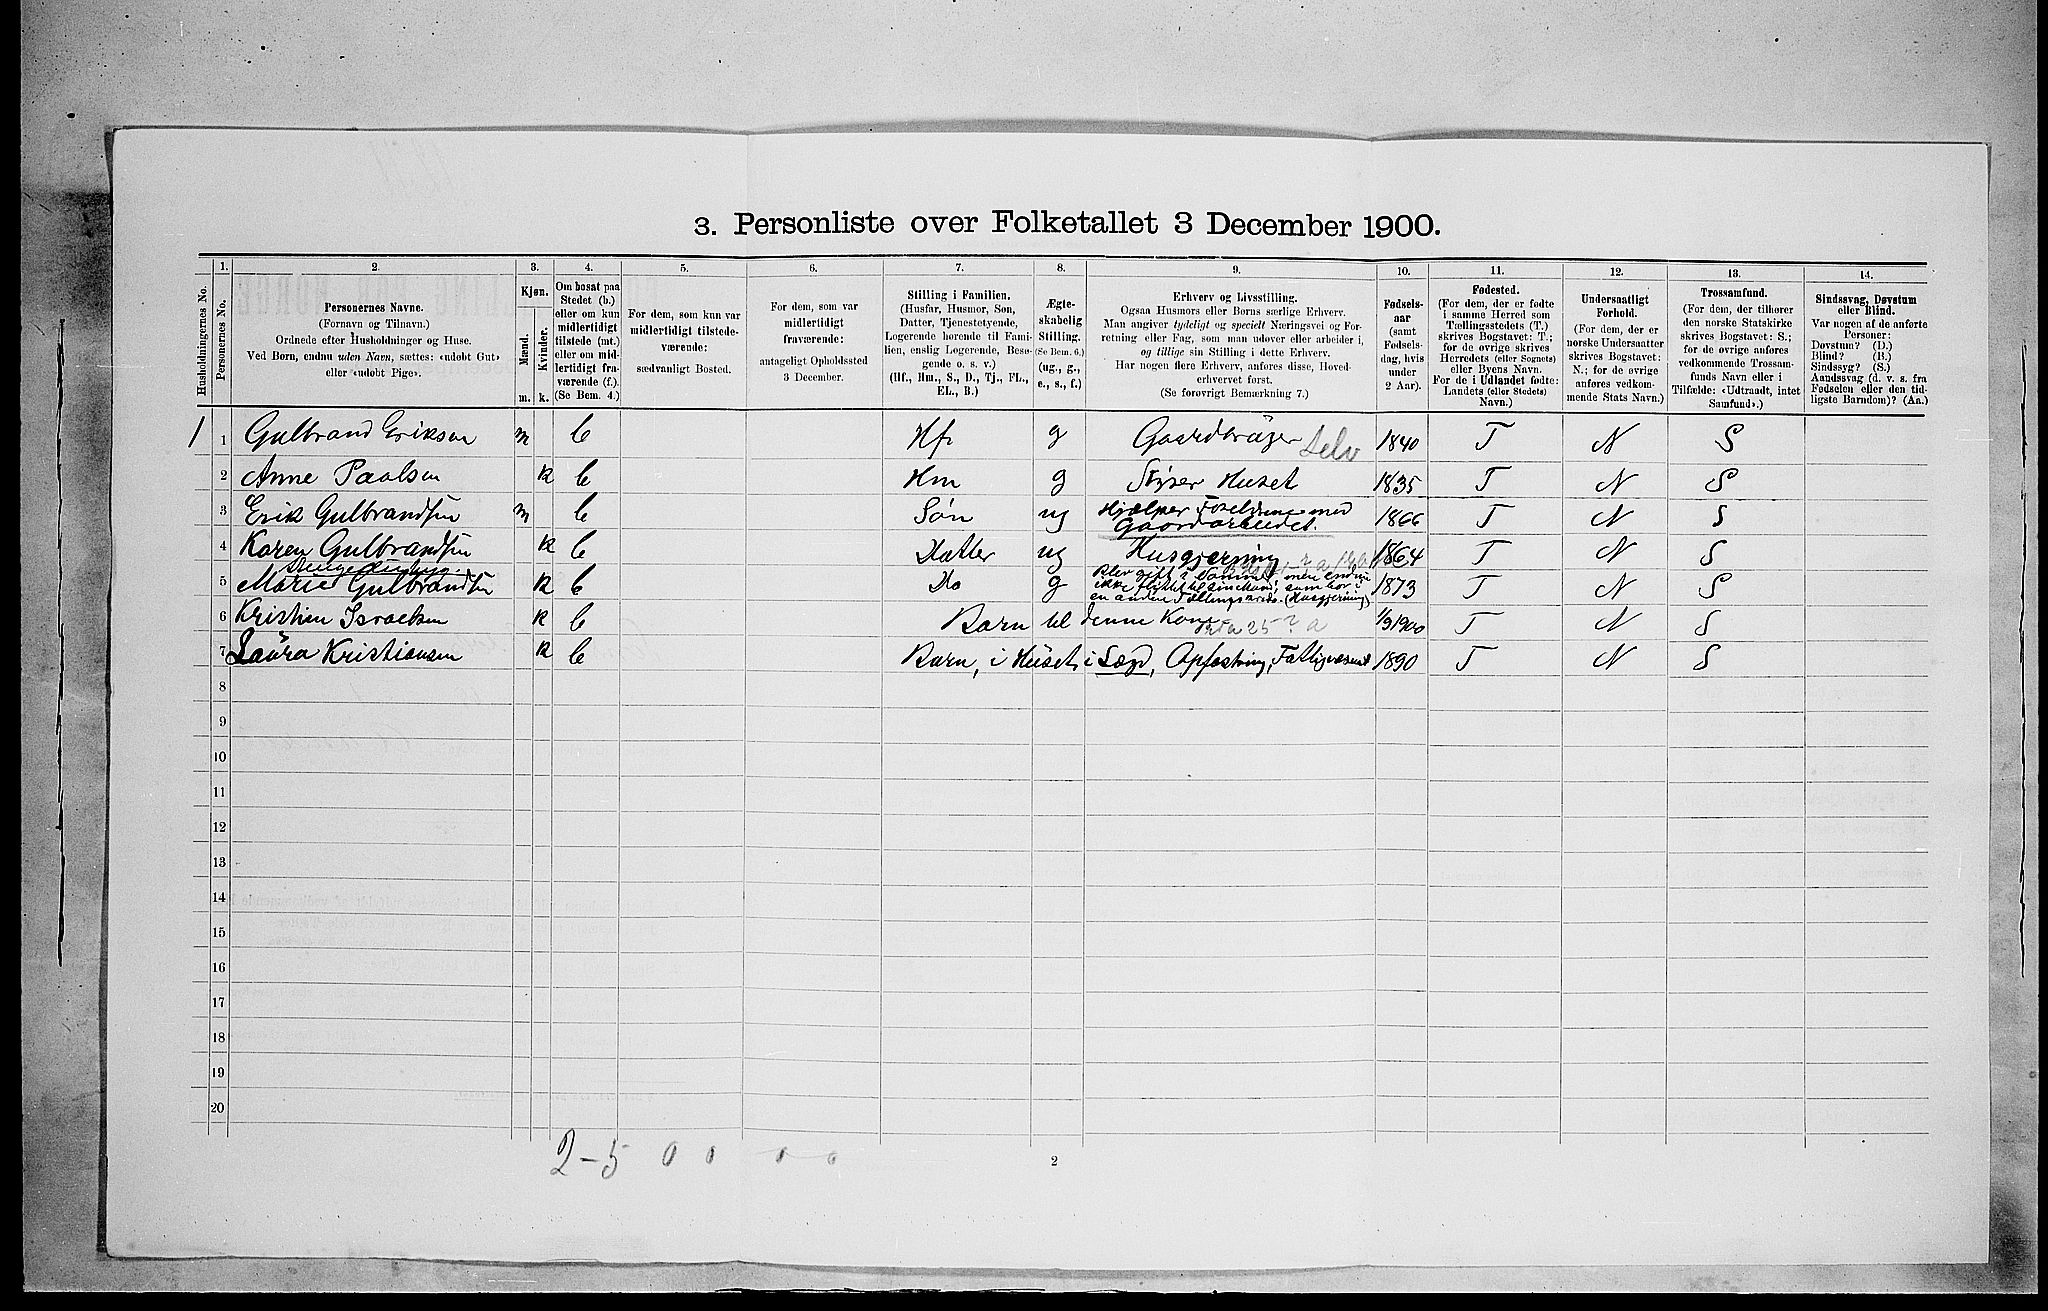 3. Personliste over Folketallet 3 December 1900.
Husholdningernes No.
1.
Personernes No.
2.
Personernes Navne.
(Fornavn og Tilnavn.)
Ordnede efter Husholdninger og Huse.
Ved Børn, endnu uden Navn, sættes: «udøbt Gut»
eller «udøbt Pige».
3.
Kjøn.
Mænd.
Kvinder.
m. k.
4.
Om bosat paa
Stedet (b.)
eller om kun
midlertidigt
tilstede (mt.)
eller om mid-
lertidigt fra-
værende (f.).
(Se Bem. 4.)
5.
For dem, som kun var
midlertidigt tilstede-
værende:
sædvanligt Bosted.
6.
For dem, som var
midlertidigt
fraværende:
antageligt Opholdssted
3 December.
7.
Stilling i Familien.
(Husfar, Husmor, Søn,
Datter, Tjenestetyende,
Logerende hørende til Fami-
lien, enslig Logerende, Besø-
gende o. s. v.)
(Hf., Hm., S., D., Tj., FL.,
EL., B.)
8.
Ægte-
skabelig
Stilling.
(Se Bem. 6.)
(ug., g.,
e., s., f.)
9.
Erhverv og Livsstilling.
Ogsaa Husmors eller Børns særlige Erhverv.
Man angiver tydeligt og specielt Næringsvei og For-
retning eller Fag, som man udøver eller arbeider i,
og tillige sin Stilling i dette Erhverv.
Har nogen flere Erhverv, anføres disse, Hoved-
erhvervet først.
(Se forøvrigt Bemærkning 7.)
10.
Fødsels-
aar
(samt
Fødsels-
dag, hvis
under
2 Aar).
11.
Fødested.
(For dem, der er fødte
i samme Herred som
Tællingsstedets (T.)
skrives Bogstavet: T.;
for de øvrige skrives
Herredets (eller Sognets)
eller Byens Navn.
For de i Udlandet fødte:
Landets (eller Stedets)
Navn.)
12.
Undersaatligt
Forhold.
(For dem, der er
norske Undersaatter
skrives Bogstavet:
N.; for de øvrige
anføres vedkom-
mende Stats Navn.)
13.
Trossamfund.
(For dem, der tilhører
den norske Statskirke
skrives Bogstavet: S.;
for de øvrige anføres
vedkommende Trossam-
funds Navn eller i
Tilfælde: «Udtraadt, intet
Samfund».)
14.
Sindssvag, Døvstum
eller Blind.
Var nogen af de anførte
Personer:
Døvstum? (D.)
Blind? (B.)
Sindssyg? (S.)
Aandssvag (d. v. s. fra
Fødselen eller den tid-
ligste Barndom)? (Aa.)
1 1 Gulbrand Eriksen m b Hf g Gaardbrüger Selv 1840 T N S
2 Anne Paalsen k b Hm g Styser Huset 1835 T N S
3 Erik Gulbrandsen m b Søn ug Hjælper Forældrene med Gaardarbeidet. 1866 T N S
4 Karen Gulbrandsen k b Datter ug Husgjerning 1864 T N S
5 Marie Gulbrandsen k b Do g Blev gift i Sommer, men endnu
ikke flyttet til sin Mand, som bor i
en anden Tællingskreds. (Husgjerning) 1873 T N S
6 Kristien Israelsen k b Barn til denne Kone 1/9 1900 T N S
7 Laura Kristiansen k b Barn, i Huset i Lægd, Opfostring, Fattigvæsenet 1890 T N S
8
9
10
11
12
13
14
15
16
17
18
19
20
2-5 0 0 0 0
2